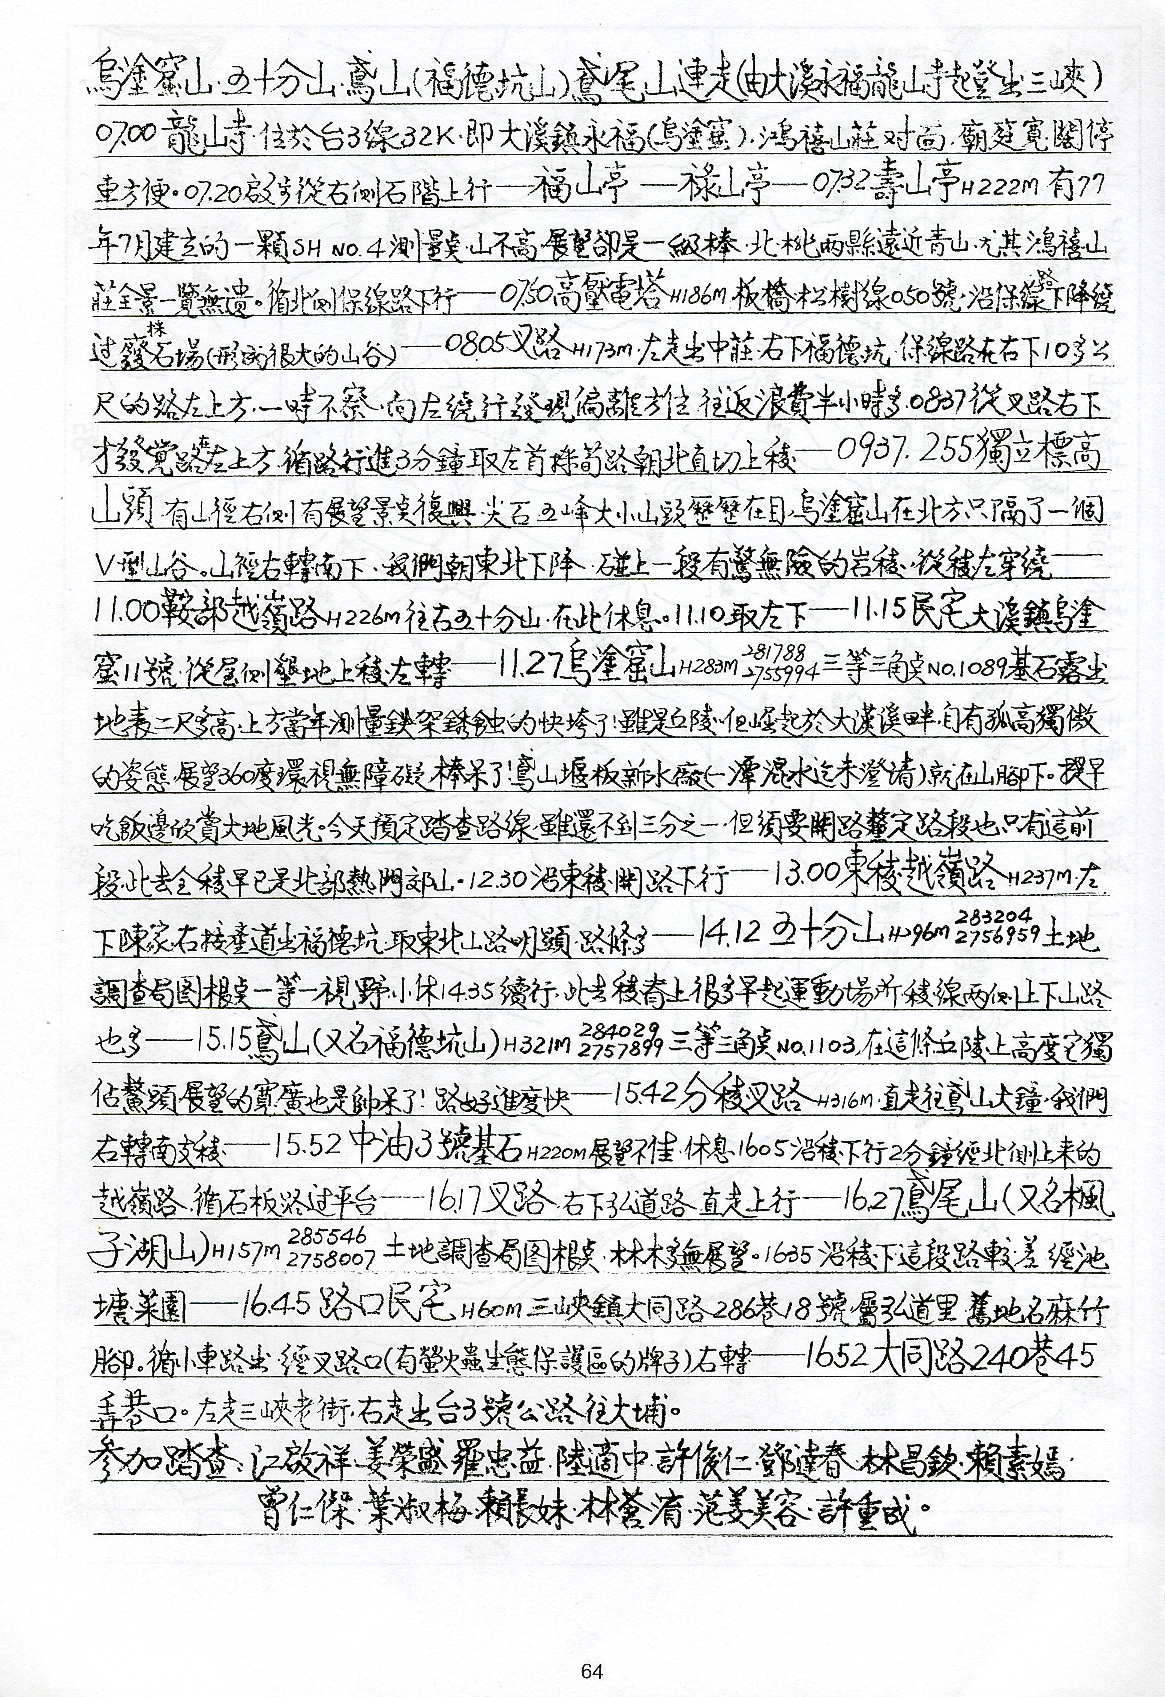 烏塗窟山·五十分山·鳶山(福德坑山)鳶尾山連走(由大溪永福龍山寺起登出三峽)
07.00龍山寺·位於台3線32K·即大溪鎮永福(烏塗窟)·鴻禧山莊对面·廟埕寬闊停
車方便。07.20啟步從右側石階上行——福山亭——祿山亭——07.32壽山亭H222M有77
年7月建立的一顆SH NO.4測量点·山不高·展望卻是一級棒·北·桃兩縣遠近青山·尤其鴻禧山
莊全景一覽無遺。循北側保線路下行——07.50高壓電塔H186M·板橋·松樹線050號·沿保線路下降繞
过廢採石場(形成很大的山谷)——0805叉路H173M·左走出中莊·右下福德坑·保線路在右下10多公
尺的路左上方·一時不察·向左繞行發現偏離方位·往返浪費半小時多·0837從叉路右下
才發覺路在左上方·循路行進3分鐘取左首採荀路朝北直切上稜——0937.255獨立標高
山頭·有山徑右側有展望景点復興·尖石·五峰大小山頭歷歷在目·烏塗窟山在北方只隔了一個
V型山谷。山徑右轉南下·我們朝東北下降·碰上一段有驚無險的岩稜·從稜左穿繞——
11.00鞍部越嶺路H226M往右五十分山·在此休息。11.10取左下——11.15民宅大溪鎮烏塗
窟11號·從屋側墾地上稜·左轉——11.27烏塗窟山H283M 281788 2755994三等三角点NO.1089基石露出
地表二尺多高·上方當年測量鉄架銹蝕的快垮了!雖是丘陵·但崛起於大漢溪畔·自有孤高獨傲
的姿態·展望360度環視無障礙·棒呆了!鳶山堰板新水廠(一潭混水迄未澄清)就在山腳下。提早
吃飯邊欣賞大地風光·今天預定踏查路線·雖還不到三分之一·但須要開路釐定路段也只有這前
段·此去全稜早已是北部熱門郊山·12.30沿東稜·開路下行——13.00東稜越嶺路H237M·左
下陳家·右接產道出福德坑·取東北山路明顯·路條多——14.12五十分山H296M 283204 2756959土地
調查局图根点一等一視野·小休14.35續行·此去稜脊上很多早起運動場所·稜線兩側上下山路
也多——15.15鳶山(又名福德坑山)H321M 284029 2757899三等三角点NO.1103·在這條丘陵上高度它獨
佔鰲頭·展望的寬廣也是帥呆了!路好進度快——15.42分稜叉路H316M·直走往鳶山大鐘·我們
右轉南支稜——15.52中油3號基石H220M展望不佳·休息1605沿稜下行2分鐘經北側上來的
越嶺路·循石板路过平台——16.17叉路·右下弘道路·直走上行——16.27鳶尾山(又名楓
子湖山)H157M 285546 2758007土地調查局图根点·林木多無展望。1635沿稜下這段路較差·經池
塘·菜園——16.45路口民宅H60M三峽鎮大同路286巷18號·屬弘道里·舊地名麻竹
腳。循小車路出·經叉路口(有螢火蟲生態保護區的牌子)右轉——1652大同路240巷45
弄巷口。左走三峽老街·右走出台3號公路往大埔。
參加踏查:江啟祥·姜榮盛·羅忠益·陸適中·許俊仁·鄧達春·林昌欽·賴素嫣·
曾仁傑·葉淑梅·賴長妹·林蒼淯·范姜美容·許重成。
64